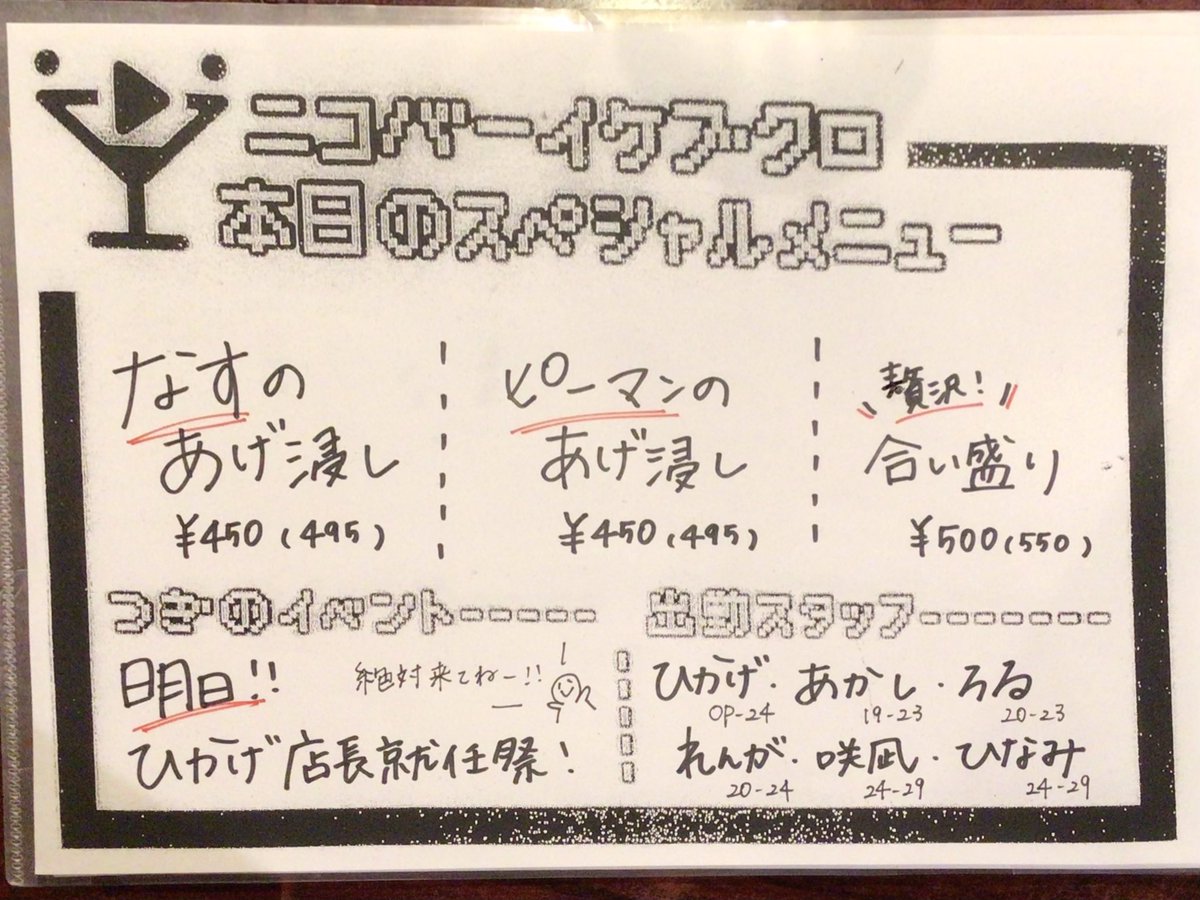 ニコバーイケブクロ
本日のスペシャルメニュー
なすの
あげ浸し
¥450(495)
ピーマンの
あげ浸し
¥450(495)
贅沢!
合い盛り
¥500(550)
つぎのイベント------
明日!!
絶対来てねー!!
ひかげ店長就任祭!
出勤スタッフ-------
ひかげ・あかし・ろる
OP-24 19-23 20-23
れんが・咲凪・ひなみ
20-24 24-29 24-29